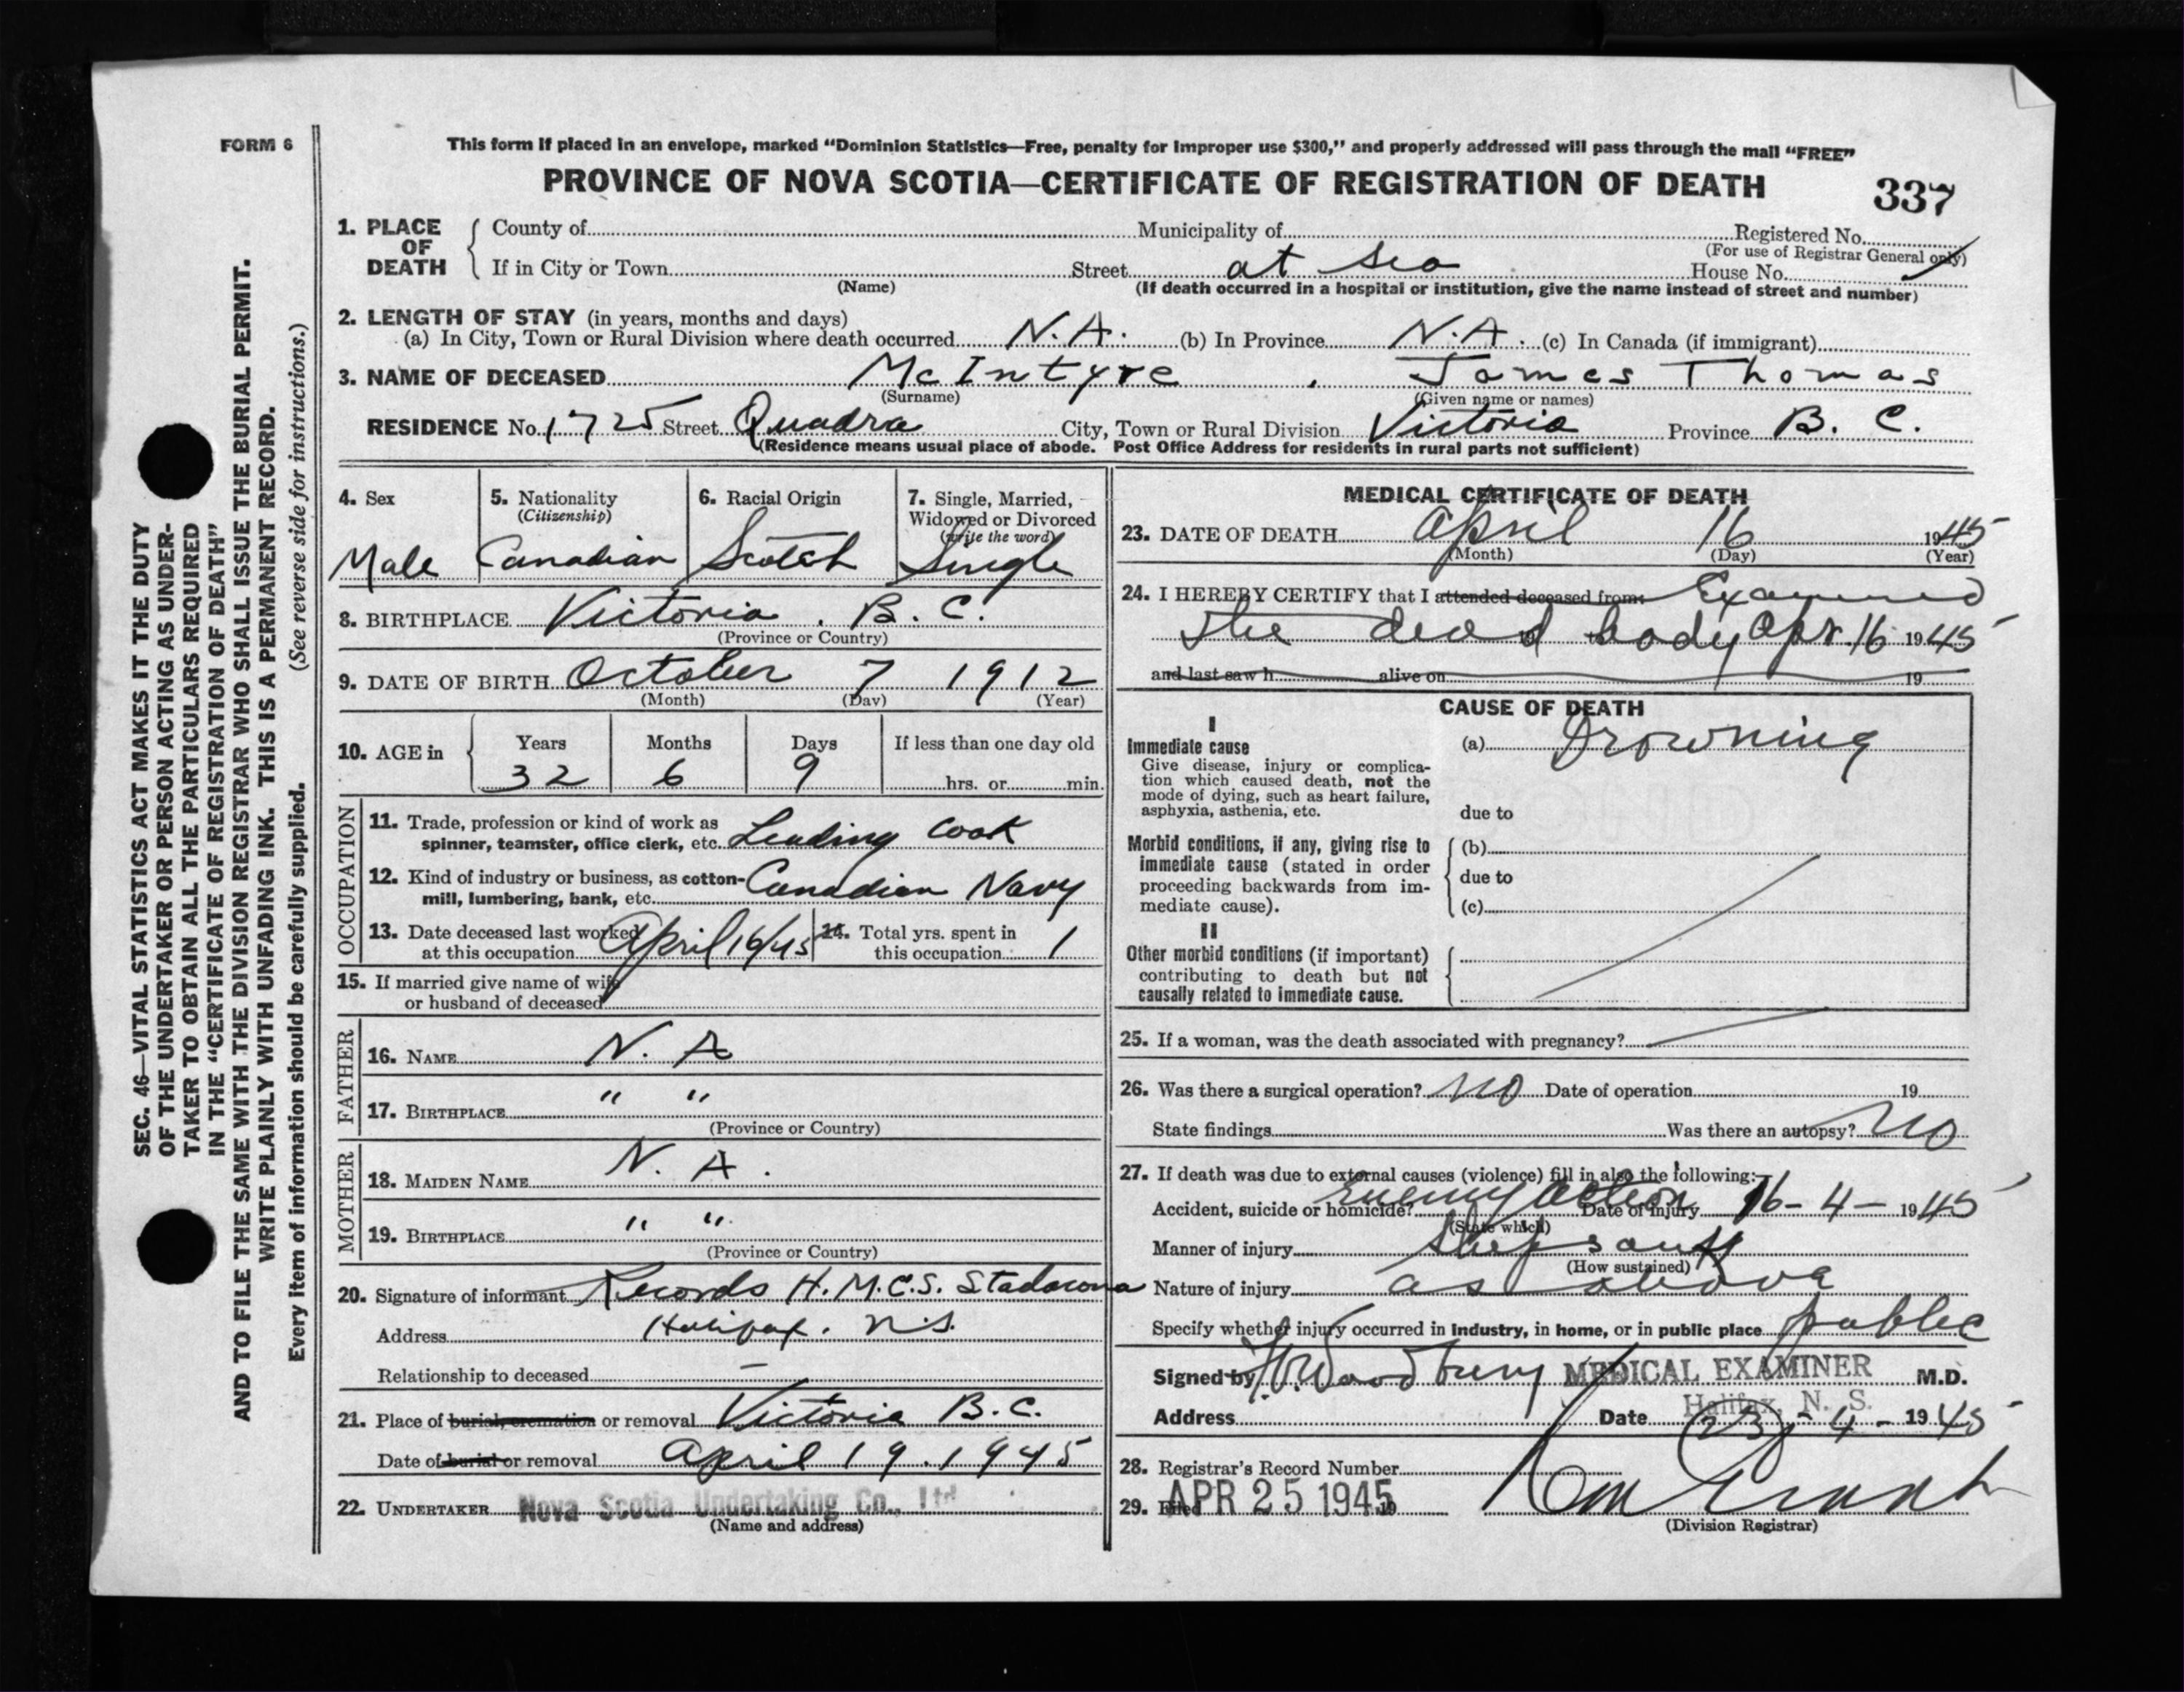 FORM 6
This form if placed in an envelope, marked "Dominion Statistics—Free, penalty for improper use $300," and properly addressed will pass through the mail "FREE"
PROVINCE OF NOVA SCOTIA—CERTIFICATE OF REGISTRATION OF DEATH
337
SEC. 46—VITAL STATISTICS ACT MAKES IT THE DUTY
OF THE UNDERTAKER OR PERSON ACTING AS UNDER-
TAKER TO OBTAIN ALL THE PARTICULARS REQUIRED
IN THE "CERTIFICATE OF REGISTRATION OF DEATH"
AND TO FILE THE SAME WITH THE DIVISION REGISTRAR WHO SHALL ISSUE THE BURIAL PERMIT.
WRITE PLAINLY WITH UNFADING INK. THIS IS A PERMANENT RECORD.
Every item of information should be carefully supplied. (See reverse side for instructions.)
1. PLACE OF DEATH
County of Municipality of Registered No.
(For use of Registrar General only)
If in City or Town Street at sea House No.
(Name) (If death occurred in a hospital or institution, give the name instead of street and number)
2. LENGTH OF STAY (in years, months and days)
(a) In City, Town or Rural Division where death occurred N.A. (b) In Province N.A. (c) In Canada (if immigrant)
3. NAME OF DECEASED McIntyre, James Thomas
(Surname) (Given name or names)
RESIDENCE No. 1725 Street Quadra City, Town or Rural Division Victoria Province B. C.
(Residence means usual place of abode. Post Office Address for residents in rural parts not sufficient)
4. Sex
Male
5. Nationality
(Citizenship)
Canadian
6. Racial Origin
Scotch
7. Single, Married,
Widowed or Divorced
(write the word)
Single
8. BIRTHPLACE Victoria. B. C.
(Province or Country)
9. DATE OF BIRTH October 7 1912
(Month) (Day) (Year)
10. AGE in
Years Months Days If less than one day old
32 6 9 hrs. or min.
OCCUPATION
11. Trade, profession or kind of work as
spinner, teamster, office clerk, etc. Leading Cook
12. Kind of industry or business, as cotton-
mill, lumbering, bank, etc. Canadian Navy
13. Date deceased last worked
at this occupation April 16/45
14. Total yrs. spent in
this occupation 1
15. If married give name of wife
or husband of deceased
FATHER
16. NAME N. A
17. BIRTHPLACE " "
(Province or Country)
MOTHER
18. MAIDEN NAME N. A.
19. BIRTHPLACE " "
(Province or Country)
20. Signature of informant Records H.M.C.S. Stadacona
Address Halifax. N.S.
Relationship to deceased —
21. Place of burial, cremation or removal Victoria B.C.
Date of burial or removal April 19. 1945
22. UNDERTAKER Nova Scotia Undertaking Co., Ltd
(Name and address)
MEDICAL CERTIFICATE OF DEATH
23. DATE OF DEATH April 16 1945
(Month) (Day) (Year)
24. I HEREBY CERTIFY that I attended deceased from: Examined
the dead body Apr. 16 1945
and last saw h alive on 19
CAUSE OF DEATH
I
Immediate cause
Give disease, injury or complica-
tion which caused death, not the
mode of dying, such as heart failure,
asphyxia, asthenia, etc.
(a) Drowning
due to
Morbid conditions, if any, giving rise to
immediate cause (stated in order
proceeding backwards from im-
mediate cause).
(b)
due to
(c)
II
Other morbid conditions (if important)
contributing to death but not
causally related to immediate cause.
25. If a woman, was the death associated with pregnancy?
26. Was there a surgical operation? no Date of operation 19
State findings Was there an autopsy? no
27. If death was due to external causes (violence) fill in also the following:
Accident, suicide or homicide? Enemy action Date of injury 16-4-1945
(State which)
Manner of injury Ship sunk
(How sustained)
Nature of injury as above
Specify whether injury occurred in industry, in home, or in public place public
Signed by Woodbury MEDICAL EXAMINER M.D.
Halifax, N. S.
Address Date 23-4-1945
28. Registrar's Record Number
29. Filed APR 25 1945 19
(Division Registrar)